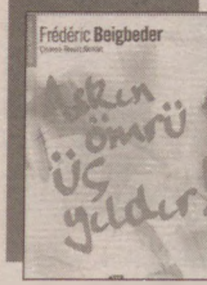 Frédéric Beigbeder
Aşkın
ömrü
üç
yıldır.